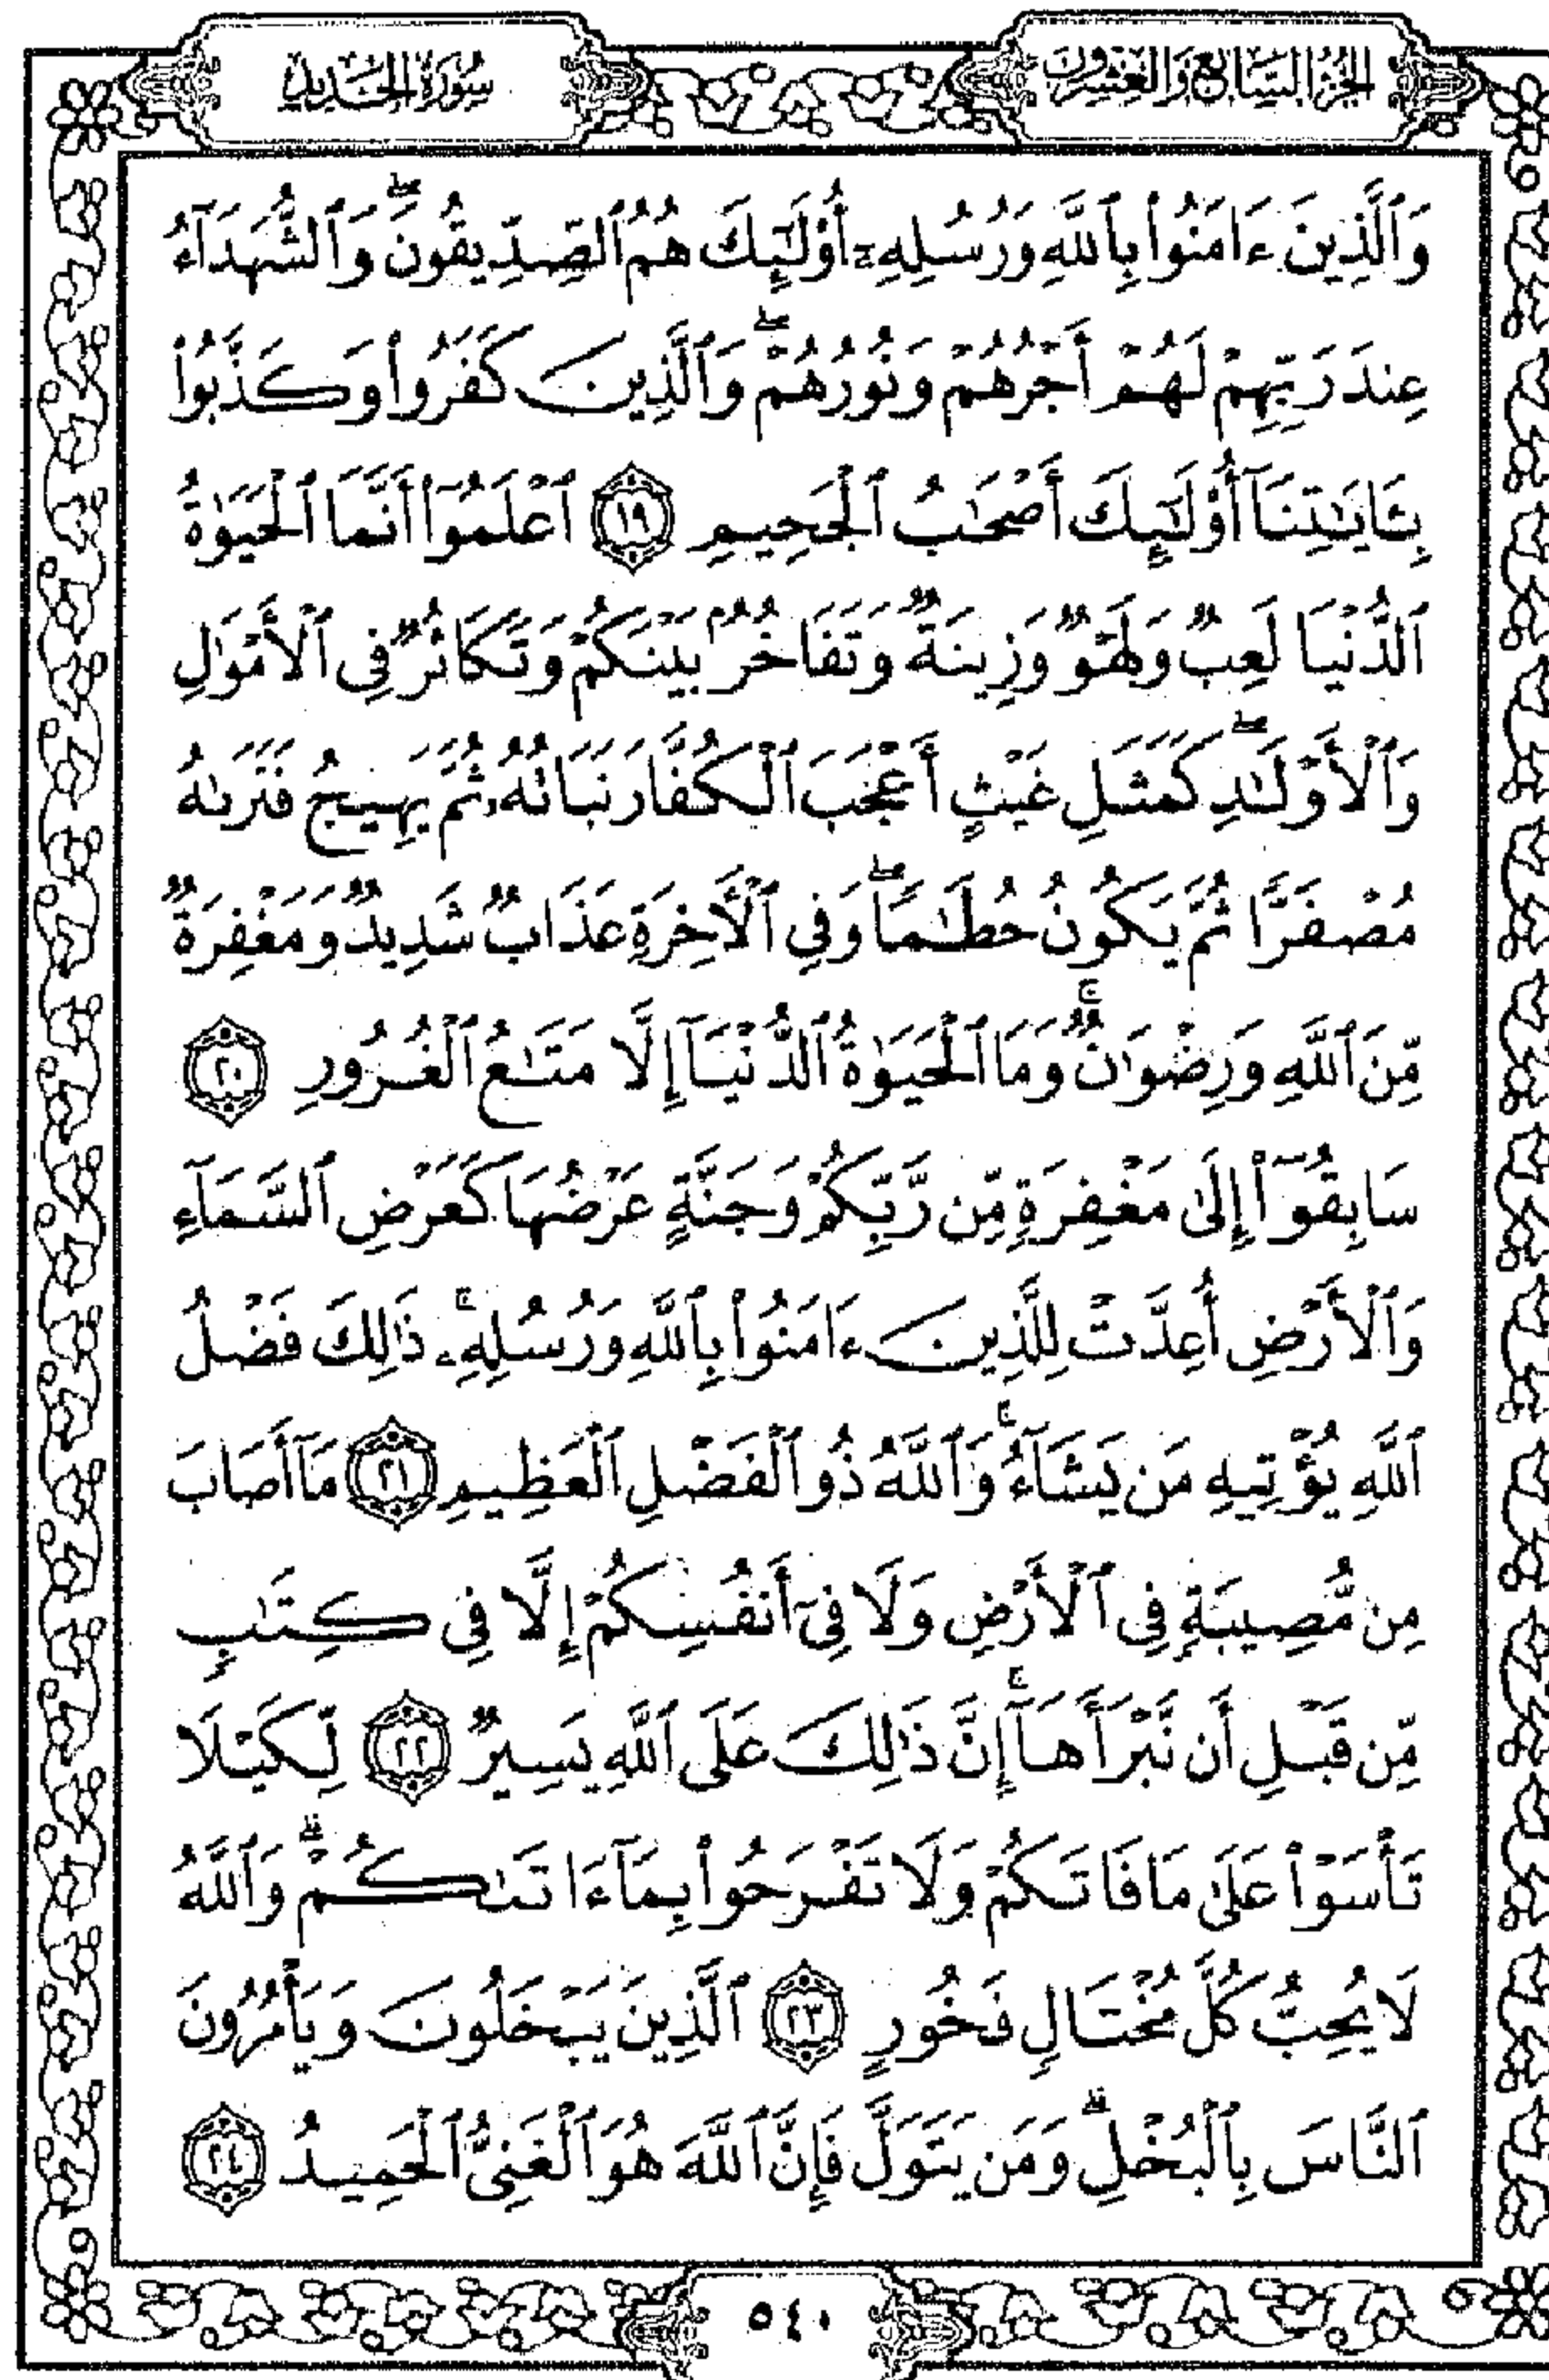 الجزء السابع والعشرون
سورة الحديد
وَٱلَّذِينَ ءَامَنُوا۟ بِٱللَّهِ وَرُسُلِهِۦٓ أُو۟لَٰٓئِكَ هُمُ ٱلصِّدِّيقُونَ ۖ وَٱلشُّهَدَآءُ
عِندَ رَبِّهِمْ لَهُمْ أَجْرُهُمْ وَنُورُهُمْ ۖ وَٱلَّذِينَ كَفَرُوا۟ وَكَذَّبُوا۟
بِـَٔايَٰتِنَآ أُو۟لَٰٓئِكَ أَصْحَٰبُ ٱلْجَحِيمِ ١٩ ٱعْلَمُوٓا۟ أَنَّمَا ٱلْحَيَوٰةُ
ٱلدُّنْيَا لَعِبٌ وَلَهْوٌ وَزِينَةٌ وَتَفَاخُرٌۢ بَيْنَكُمْ وَتَكَاثُرٌ فِى ٱلْأَمْوَٰلِ
وَٱلْأَوْلَٰدِ ۖ كَمَثَلِ غَيْثٍ أَعْجَبَ ٱلْكُفَّارَ نَبَاتُهُۥ ثُمَّ يَهِيجُ فَتَرَىٰهُ
مُصْفَرًّا ثُمَّ يَكُونُ حُطَٰمًا ۖ وَفِى ٱلْأَخِرَةِ عَذَابٌ شَدِيدٌ وَمَغْفِرَةٌ
مِّنَ ٱللَّهِ وَرِضْوَٰنٌ ۚ وَمَا ٱلْحَيَوٰةُ ٱلدُّنْيَآ إِلَّا مَتَٰعُ ٱلْغُرُورِ ٢٠
سَابِقُوٓا۟ إِلَىٰ مَغْفِرَةٍ مِّن رَّبِّكُمْ وَجَنَّةٍ عَرْضُهَا كَعَرْضِ ٱلسَّمَآءِ
وَٱلْأَرْضِ أُعِدَّتْ لِلَّذِينَ ءَامَنُوا۟ بِٱللَّهِ وَرُسُلِهِۦ ۚ ذَٰلِكَ فَضْلُ
ٱللَّهِ يُؤْتِيهِ مَن يَشَآءُ ۚ وَٱللَّهُ ذُو ٱلْفَضْلِ ٱلْعَظِيمِ ٢١ مَآ أَصَابَ
مِن مُّصِيبَةٍ فِى ٱلْأَرْضِ وَلَا فِىٓ أَنفُسِكُمْ إِلَّا فِى كِتَٰبٍ
مِّن قَبْلِ أَن نَّبْرَأَهَآ ۚ إِنَّ ذَٰلِكَ عَلَى ٱللَّهِ يَسِيرٌ ٢٢ لِّكَيْلَا
تَأْسَوْا۟ عَلَىٰ مَا فَاتَكُمْ وَلَا تَفْرَحُوا۟ بِمَآ ءَاتَىٰكُمْ ۗ وَٱللَّهُ
لَا يُحِبُّ كُلَّ مُخْتَالٍ فَخُورٍ ٢٣ ٱلَّذِينَ يَبْخَلُونَ وَيَأْمُرُونَ
ٱلنَّاسَ بِٱلْبُخْلِ ۗ وَمَن يَتَوَلَّ فَإِنَّ ٱللَّهَ هُوَ ٱلْغَنِىُّ ٱلْحَمِيدُ ٢٤
٥٤٠